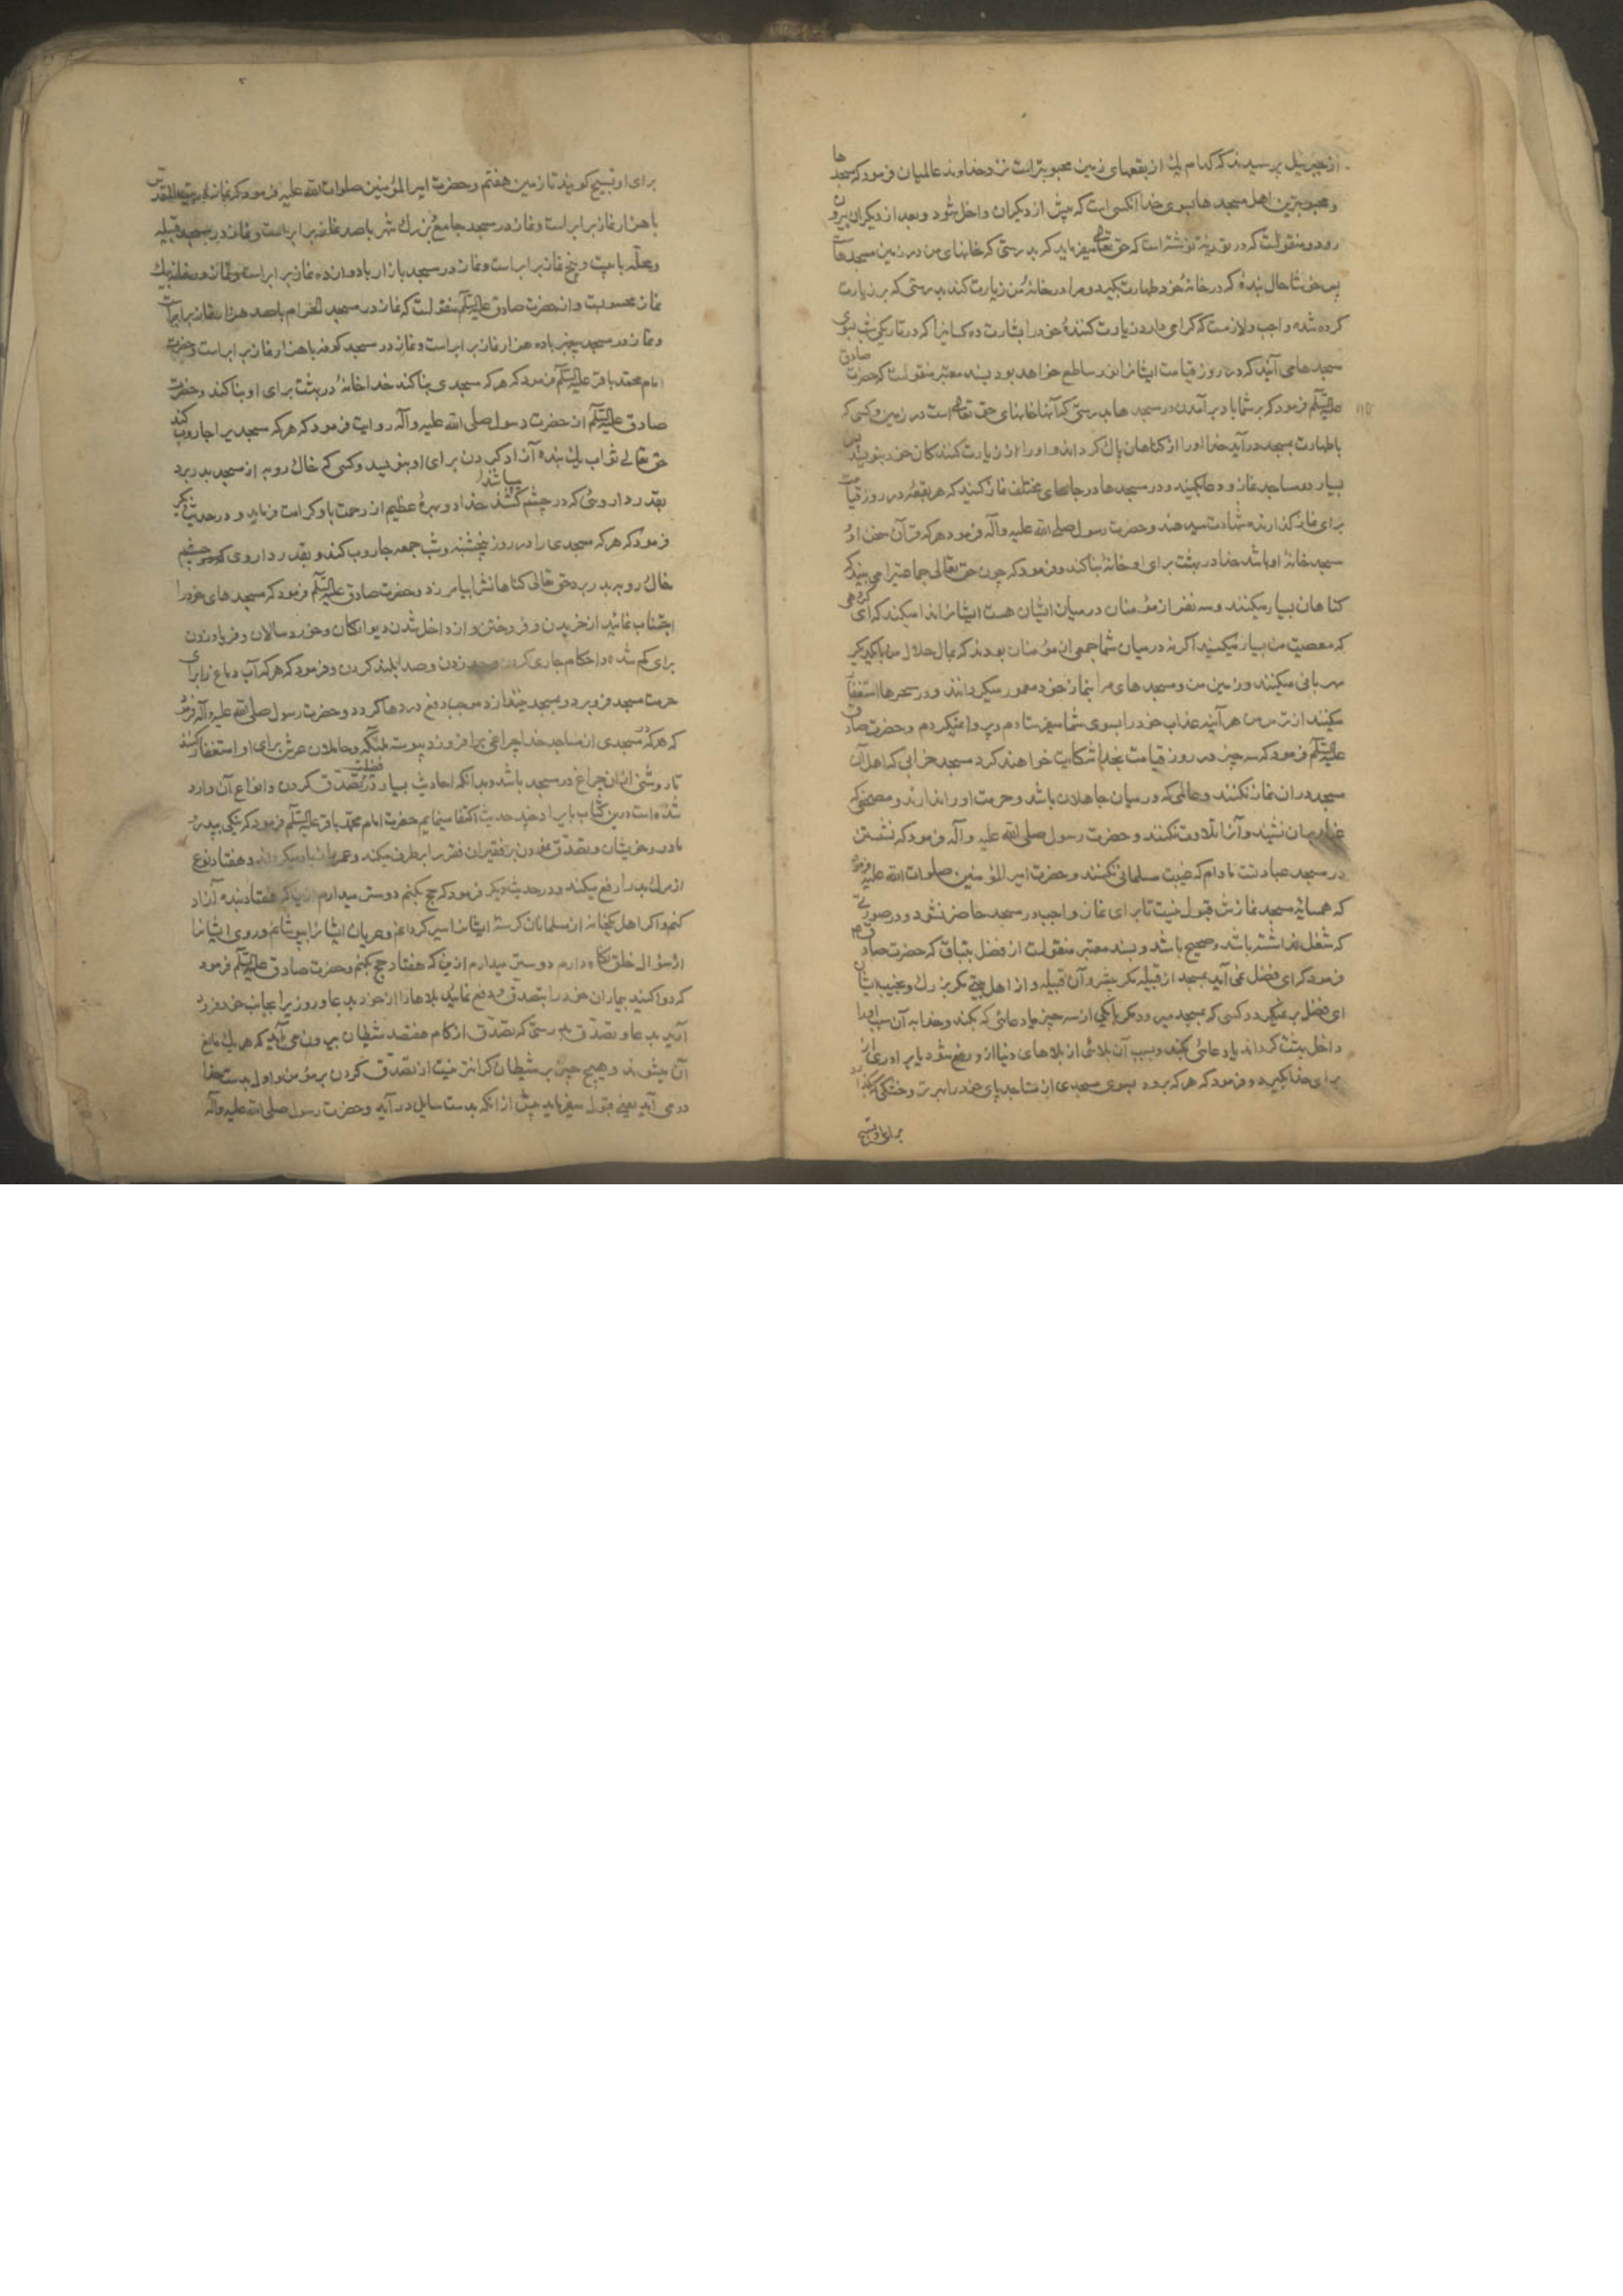 از جبرییل پرسیدند که کدام یک از بقعهای زمین محبوبتر است نزد خداوند عالمیان فرمود که مسجدها
و محبوبترین اهل مسجدها بسوی خدا آنکسی است که پیش از دیگران داخل شود و بعد از دیگران بیرون
رود و منقولست که در توریة نوشته است که حق تعالی میفرماید که بدرستی که خانهای من در زمین مسجدهاست
پس خوشا حال بندهٔ که در خانهٔ خود طهارت بگیرد و مرا در خانهٔ من زیارت کند بدرستی که بر زیارت
کرده شده واجب و لازمست که گرامی دارد زیارت کنندهٔ خود را بشارت ده کسانیرا که در تاریکی شب بسوی
مسجدها می آیند که در روز قیامت ایشانرا نور ساطع خواهد بود بسند معتبر منقولست که حضرت صادق
علیه السلم فرمود که بر شما باد برآمدن در مسجدها بدرستی که آنها خانهای حق تعالی است در زمین و کسی که
باطهارت بمسجد درآید خدا او را از کناهان پاک کرداند و او را از زیارت کنندکان خود بنویسد پس
بسیار در مساجد نماز و دعا بکنید و در مسجدها در جاهای مختلف نماز کنید که هر بقعهٔ در روز قیامت
برای نماز گذارنده شهادت میدهند و حضرت رسول صلی الله علیه و آله فرمود هر که قرآن سخن او و
مسجد خانهٔ او باشد خدا در بهشت برای او خانهٔ بنا کند و فرمود که چون حق تعالی جماعتیرا می بیند که
کناهان بسیار میکنند و سه نفر از مؤمنان در میان ایشان هست ایشانرا ندا میکند که ای گروهی
که معصیت من بسیار میکنید اگر نه در میان شما جمعی از مؤمنان بودند که بمال حلال من با یکدیگر
مهربانی میکنند و زمین من و مسجدهای مرا بنماز خود معمور میگردانند و در سحرها استغفار
میکنند از ترس من هر آینه عذاب خود را بسوی شما میفرستادم و پروا نمیکردم و حضرت صادق
علیه السلم فرمود که سه چیز در روز قیامت بخدا شکایت خواهند کرد مسجد خرابی که اهل آن
مسجد در ان نماز نکنند و عالمی که در میان جاهلان باشد و حرمت او را ندارند و مصحفی که
غبار بران نشیند و آنرا تلاوت نکنند و حضرت رسول صلی الله علیه و آله فرمود که نشستن
در مسجد عبادتست مادام که غیبت مسلمانی نکنند و حضرت امیر المؤمنین صلوات الله علیه فرمود
که همسایهٔ مسجد نمازش قبول نیست تا برای نماز واجب در مسجد حاضر نشود در صورتی
که شغل نداشته باشد و صحیح باشد و بسند معتبر منقولست از فضل بقباق که حضرت صادق
فرمود که ای فضل نمی آید بمسجد از قبیله مگر بیشرو آن قبیله و از اهل بیتی مگر بزرک و نجیب ایشان
ای فضل بر نمیگردد کسی که بمسجد میرود مگر با یکی از سه چیز یا دعائی که بکند و خدا به آن سبب او را
داخل بهشت کرداند یا دعائی بکند و بسبب آن بلائی از بلاهای دنیا از و رفع شود یا برادری از
برای خدا بگیرد و فرمود که هر که برود بسوی مسجدی از مساجد پای خود را بهر تر و خشکی که گذارد
برای او تسبیح
برای او تسبیح گویند تا زمین هفتم و حضرت امیر المؤمنین صلوات الله علیه فرمود که نماز در بیت المقدس
با هزار نماز برابر است و نماز در مسجد جامع بزرک شهر با صد نماز برابر است و نماز در مسجد قبیله
و محله با بیست و پنج نماز برابر است و نماز در مسجد بازار با دوازده نماز برابر است و نماز در خانه یک
نماز محسوبست و از حضرت صادق علیه السلم منقولست که نماز در مسجد الحرام با صد هزار نماز برابر است
و نماز در مسجد پیغمبر با ده هزار نماز برابر است و نماز در مسجد کوفه با هزار نماز برابر است و حضرت
امام محمد باقر علیه السلم فرمود که هر که مسجدی بنا کند خدا خانهٔ در بهشت برای او بنا کند و حضرت
صادق علیه السلم از حضرت رسول صلی الله علیه و آله روایت فرمود که هر که مسجدیرا جاروب کند
حق تعالی ثواب یک بنده آزاد کردن برای او بنویسد و کسی که خاک روبه از مسجد بدر برد
بقدر داروئی که در چشم کشند خدا دو بهرهٔ عظیم از رحمت باو کرامت فرماید و در حدیث دیگر
فرمود که هر که مسجدی را در روز پنجشنبه و شب جمعه جاروب کند و بقدر داروی که در چشم
خاک روبه بدر برد حق تعالی کناهانش را بیامرزد و حضرت صادق علیه السلم فرمود که مسجدهای خود را
اجتناب نمائید از خریدن و فروختن و از داخل شدن دیوانکان و خورد سالان و فریاد زدن
برای کم شده و احکام جاری کردن و حد زدن و صدا بلند کردن و فرمود که هر که آب دماغ را برای
حرمت مسجد فرو برد و بمسجد نیندازد موجب دفع دردها گردد و حضرت رسول صلی الله علیه و آله فرمود
که هر که در مسجدی از مساجد خدا چراغی برافروزد پیوسته ملئکه و حاملان عرش برای او استغفار کنند
تا روشنی از ان چراغ در مسجد باشد و بدانکه احادیث بسیار در فضیلت تصدق کردن و انواع آن وارد
شده است درین کتاب بایراد چند حدیث اکتفا مینمایم حضرت امام محمد باقر علیه السلم فرمود که نیکی بپدر و
مادر و خویشان و تصدق نمودن بر فقیران فقر را برطرف میکند و عمر را زیاد میگرداند و هفتاد نوع
از مرک بد را رفع میکند و در حدیث دیگر فرمود که حج بکنم دوستر میدارم از ین که هفتاد بنده آزاد
کنم و اگر اهل یکخانه از مسلمانان گرسنهٔ ایشانرا سیر گردانم و عریان ایشانرا بپوشانم و روی ایشانرا
از سؤال خلق نگاه دارم دوستر میدارم از ین که هفتاد حج بکنم و حضرت صادق علیه السلم فرمود
که دوا کنید بیماران خود را بتصدق و دفع نمائید بلاها را از خود بدعا و روزیرا بجانب خود فرود
آرید بدعا و تصدق بدرستی که تصدق از کام هفتصد شیطان بیرون می آید که هر یک مانع
آن میشوند و هیچ چیز بر شیطان گرانتر نیست از تصدق کردن بر مؤمن و اول بدست خدا
در می آید یعنی قبول میفرماید پیش از انکه بدست سایل درآید و حضرت رسول صلی الله علیه و آله